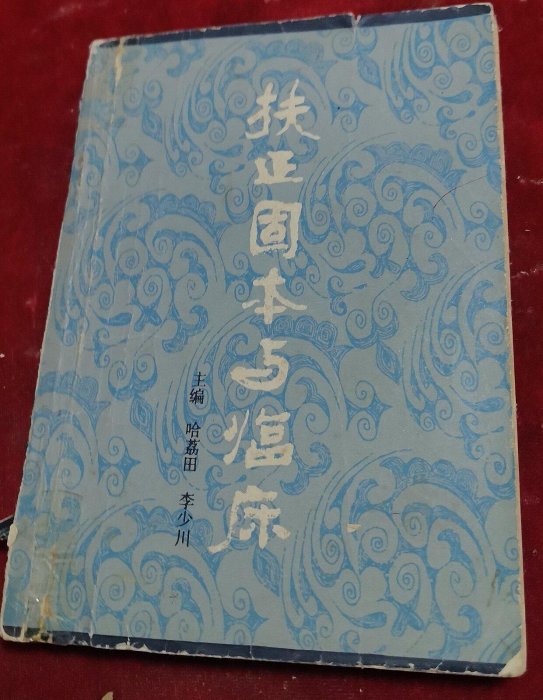 扶正固本与临床
主编 哈荔田 李少川